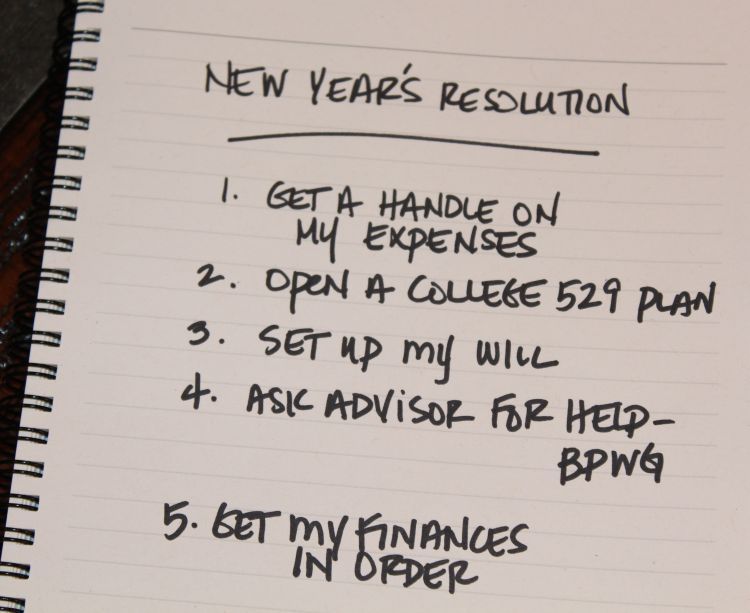 NEW YEAR'S RESOLUTION
1. GET A HANDLE ON
MY EXPENSES
2. OPEN A COLLEGE 529 PLAN
3. SET UP MY WILL
4. ASK ADVISOR FOR HELP-
BPWG
5. GET MY FINANCES
IN ORDER